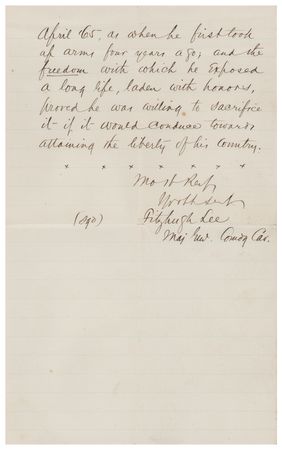 April 65, as when he first took
up arms four years ago; and the
freedom with which he exposed
a long life, laden with honors,
proved he was willing to sacrifice
it if it would conduce towards
attaining the liberty of his country.
x x x x x x x
Most Resp
Yr obt Sert
(Sgd) Fitzhugh Lee
Maj Genl. Comdg Cav.